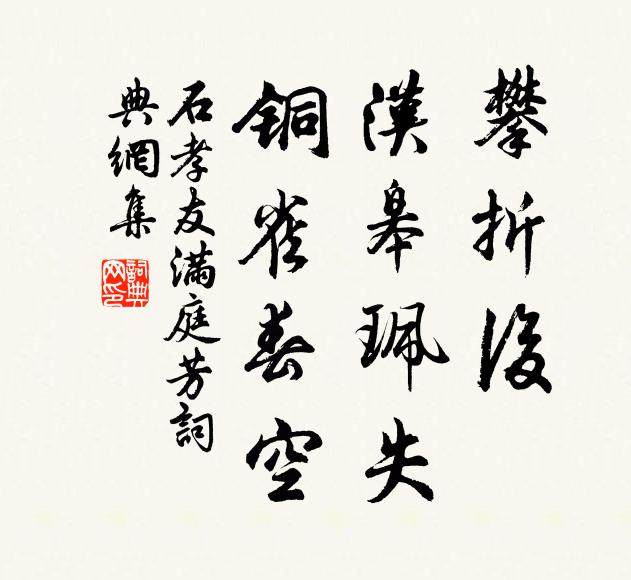 攀折後
漢皋珮失
銅雀春空
石孝友滿庭芳詞
典網集
詞典網印